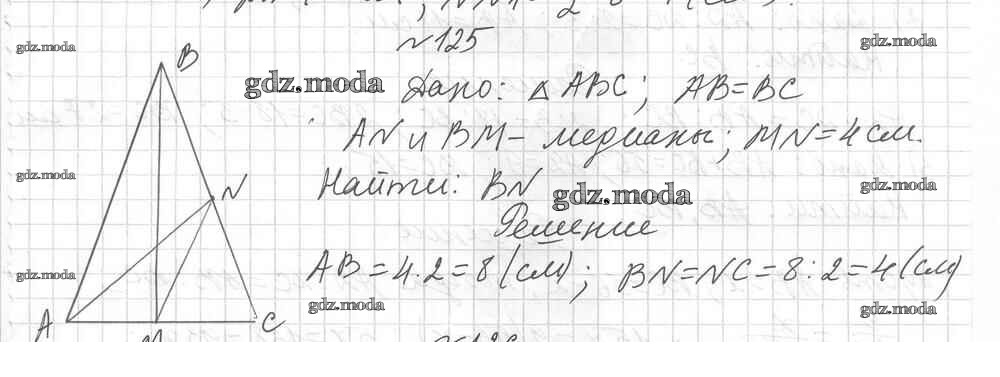 №125
Дано: △ABC; AB=BC
AN и BM – медианы; MN=4 см.
Найти: BN
Решение
AB=4·2=8 (см); BN=NC=8:2=4 (см)
B
N
A
C
gdz.moda
gdz.moda
gdz.moda
gdz.moda
gdz.moda
gdz.moda
gdz.moda
gdz.moda
gdz.moda